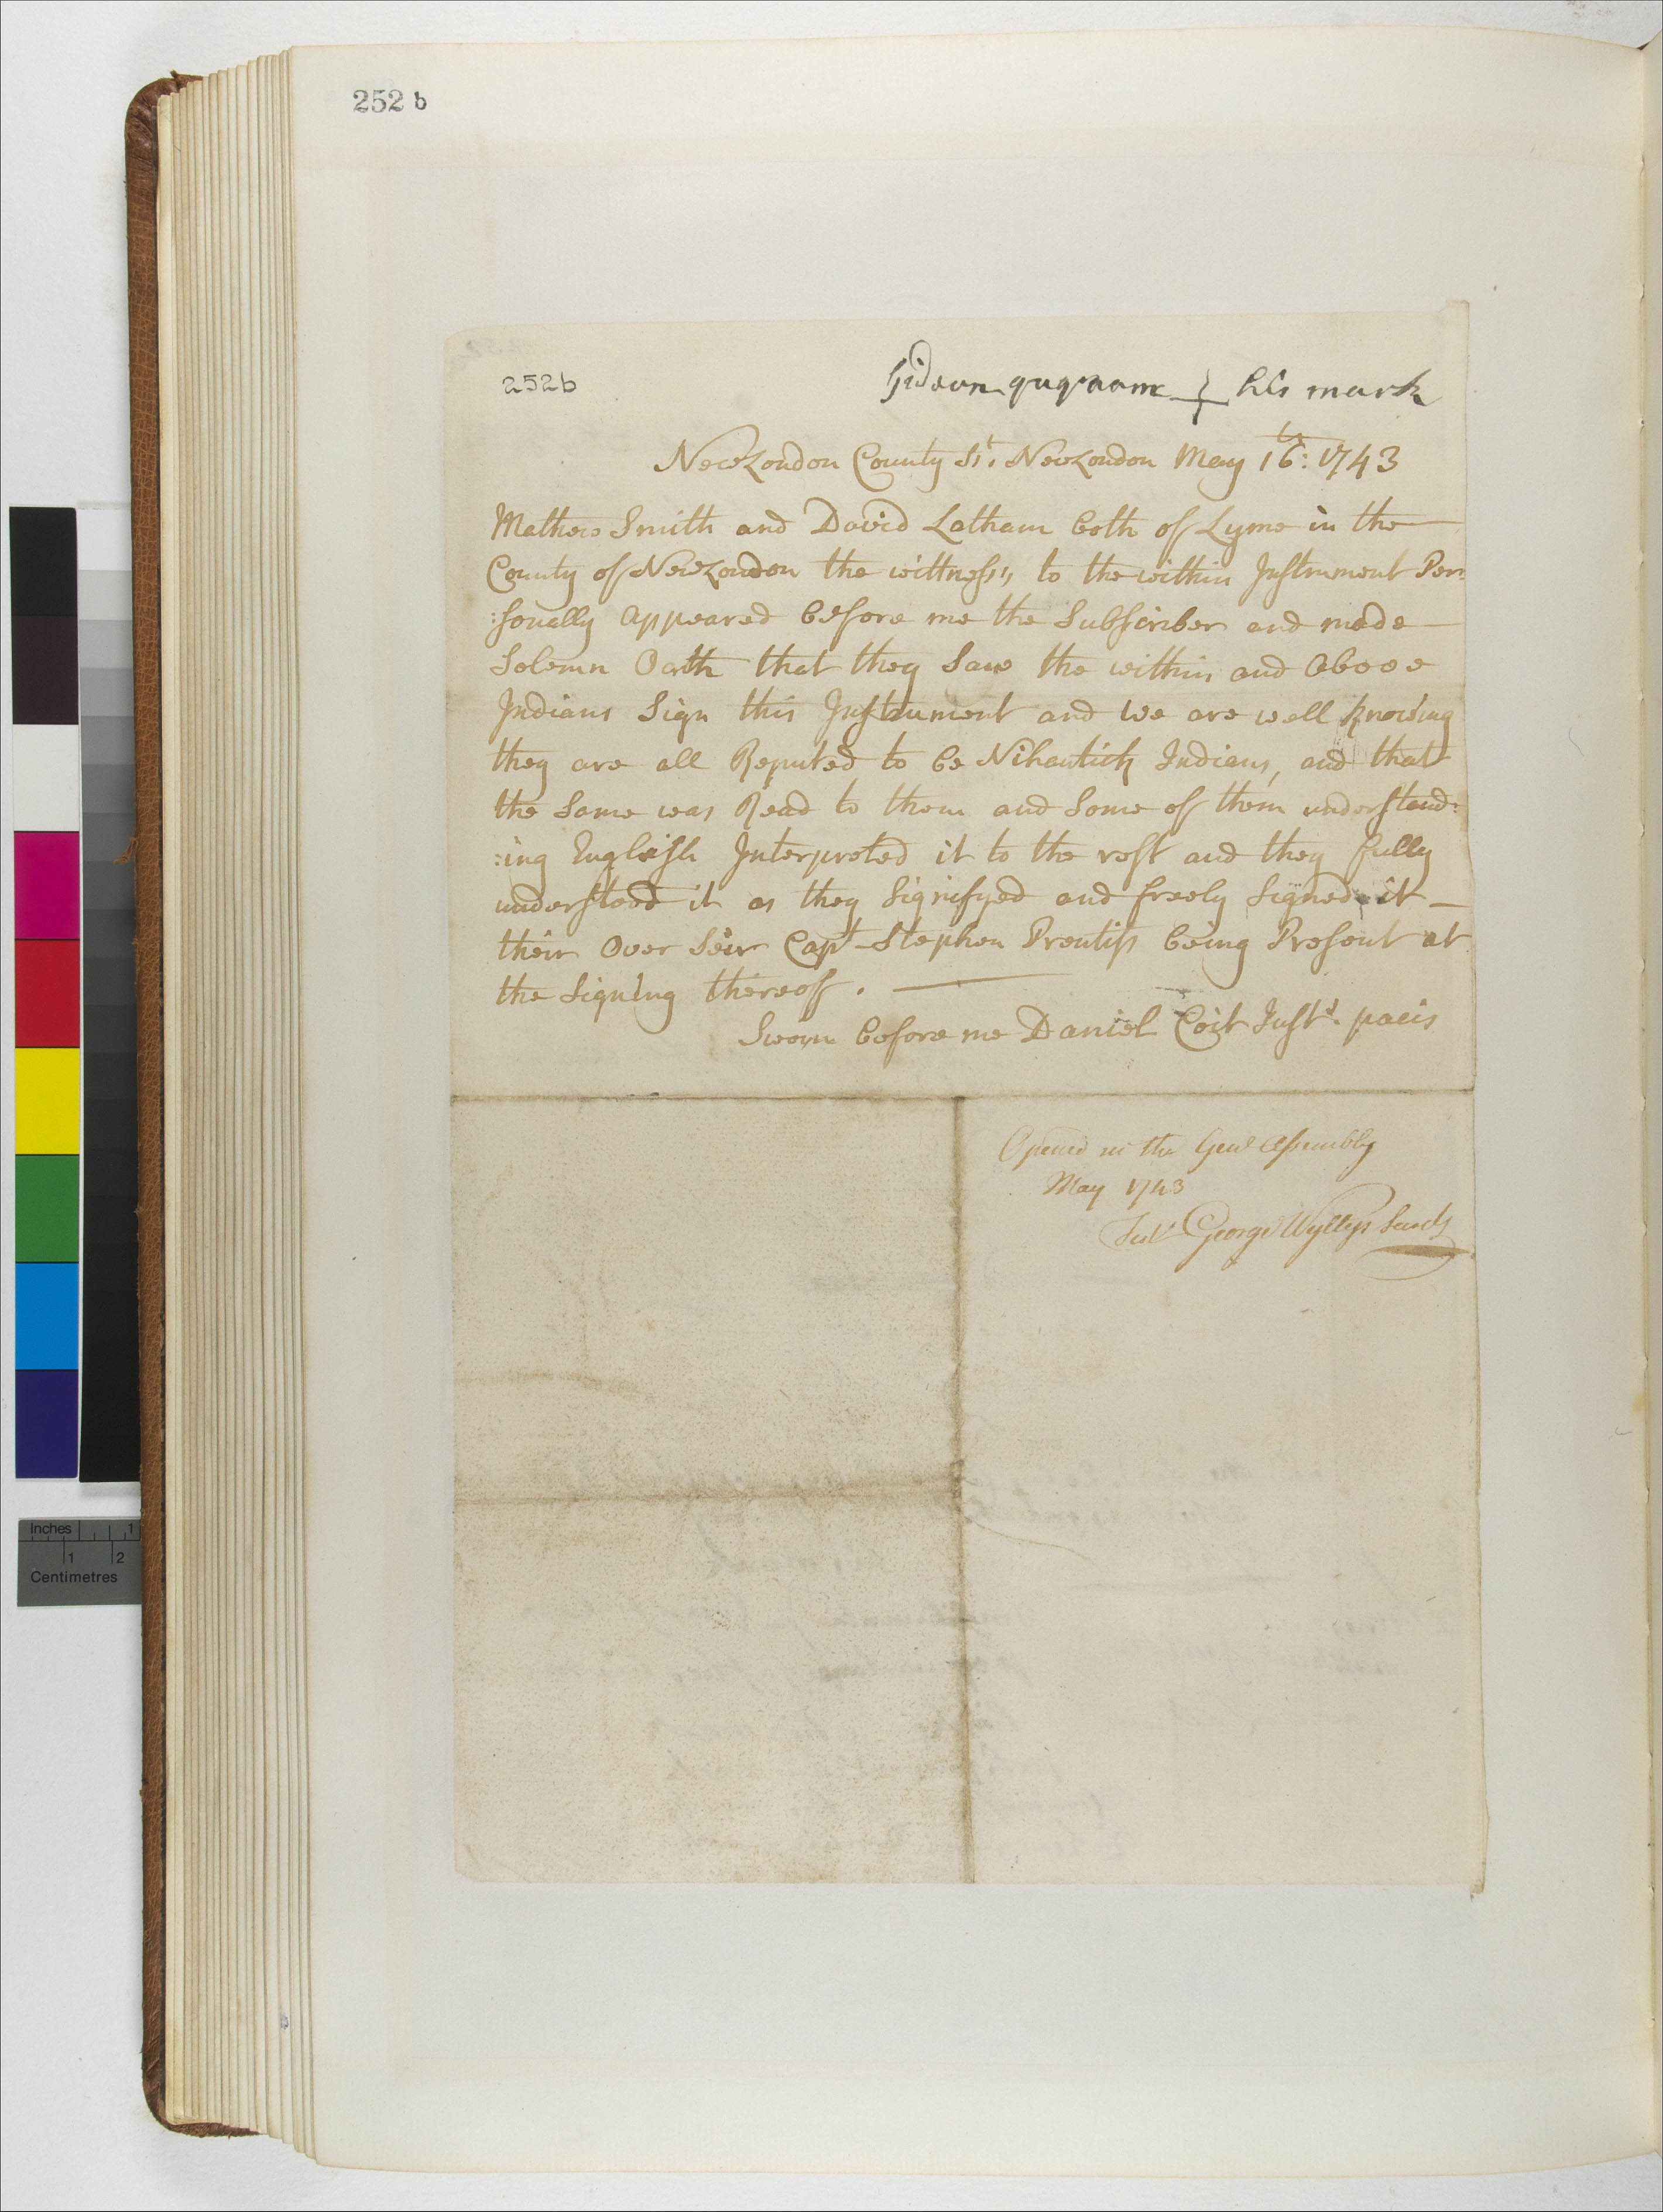 252 b
252b
Gideon ququaom his mark
New London County Ss. New London May 16th: 1743
Mathew Smith and David Latham both of Lyme in the
County of New London the wittness,, to the within Instrument Per:
:sonally appeared before me the Subscriber and made
Solemn Oath that they Saw the within and Above
Indians Sign this Instrument and we are well knowing
they are all Reputed to be Nihantick Indians, and that
the Same was Read to them and Some of them understand:
:ing English Interpreted it to the rest and they fully
understood it as they Signifyed and freely Signed it
their Over Seir Capt Stephen Prentiss being Present at
the Signing thereof.
Sworn before me Daniel Coit Justs. pacis
Opened in the Genl Assembly
May 1743
Test George Wyllys Secrty
Inches 1
1 2
Centimetres